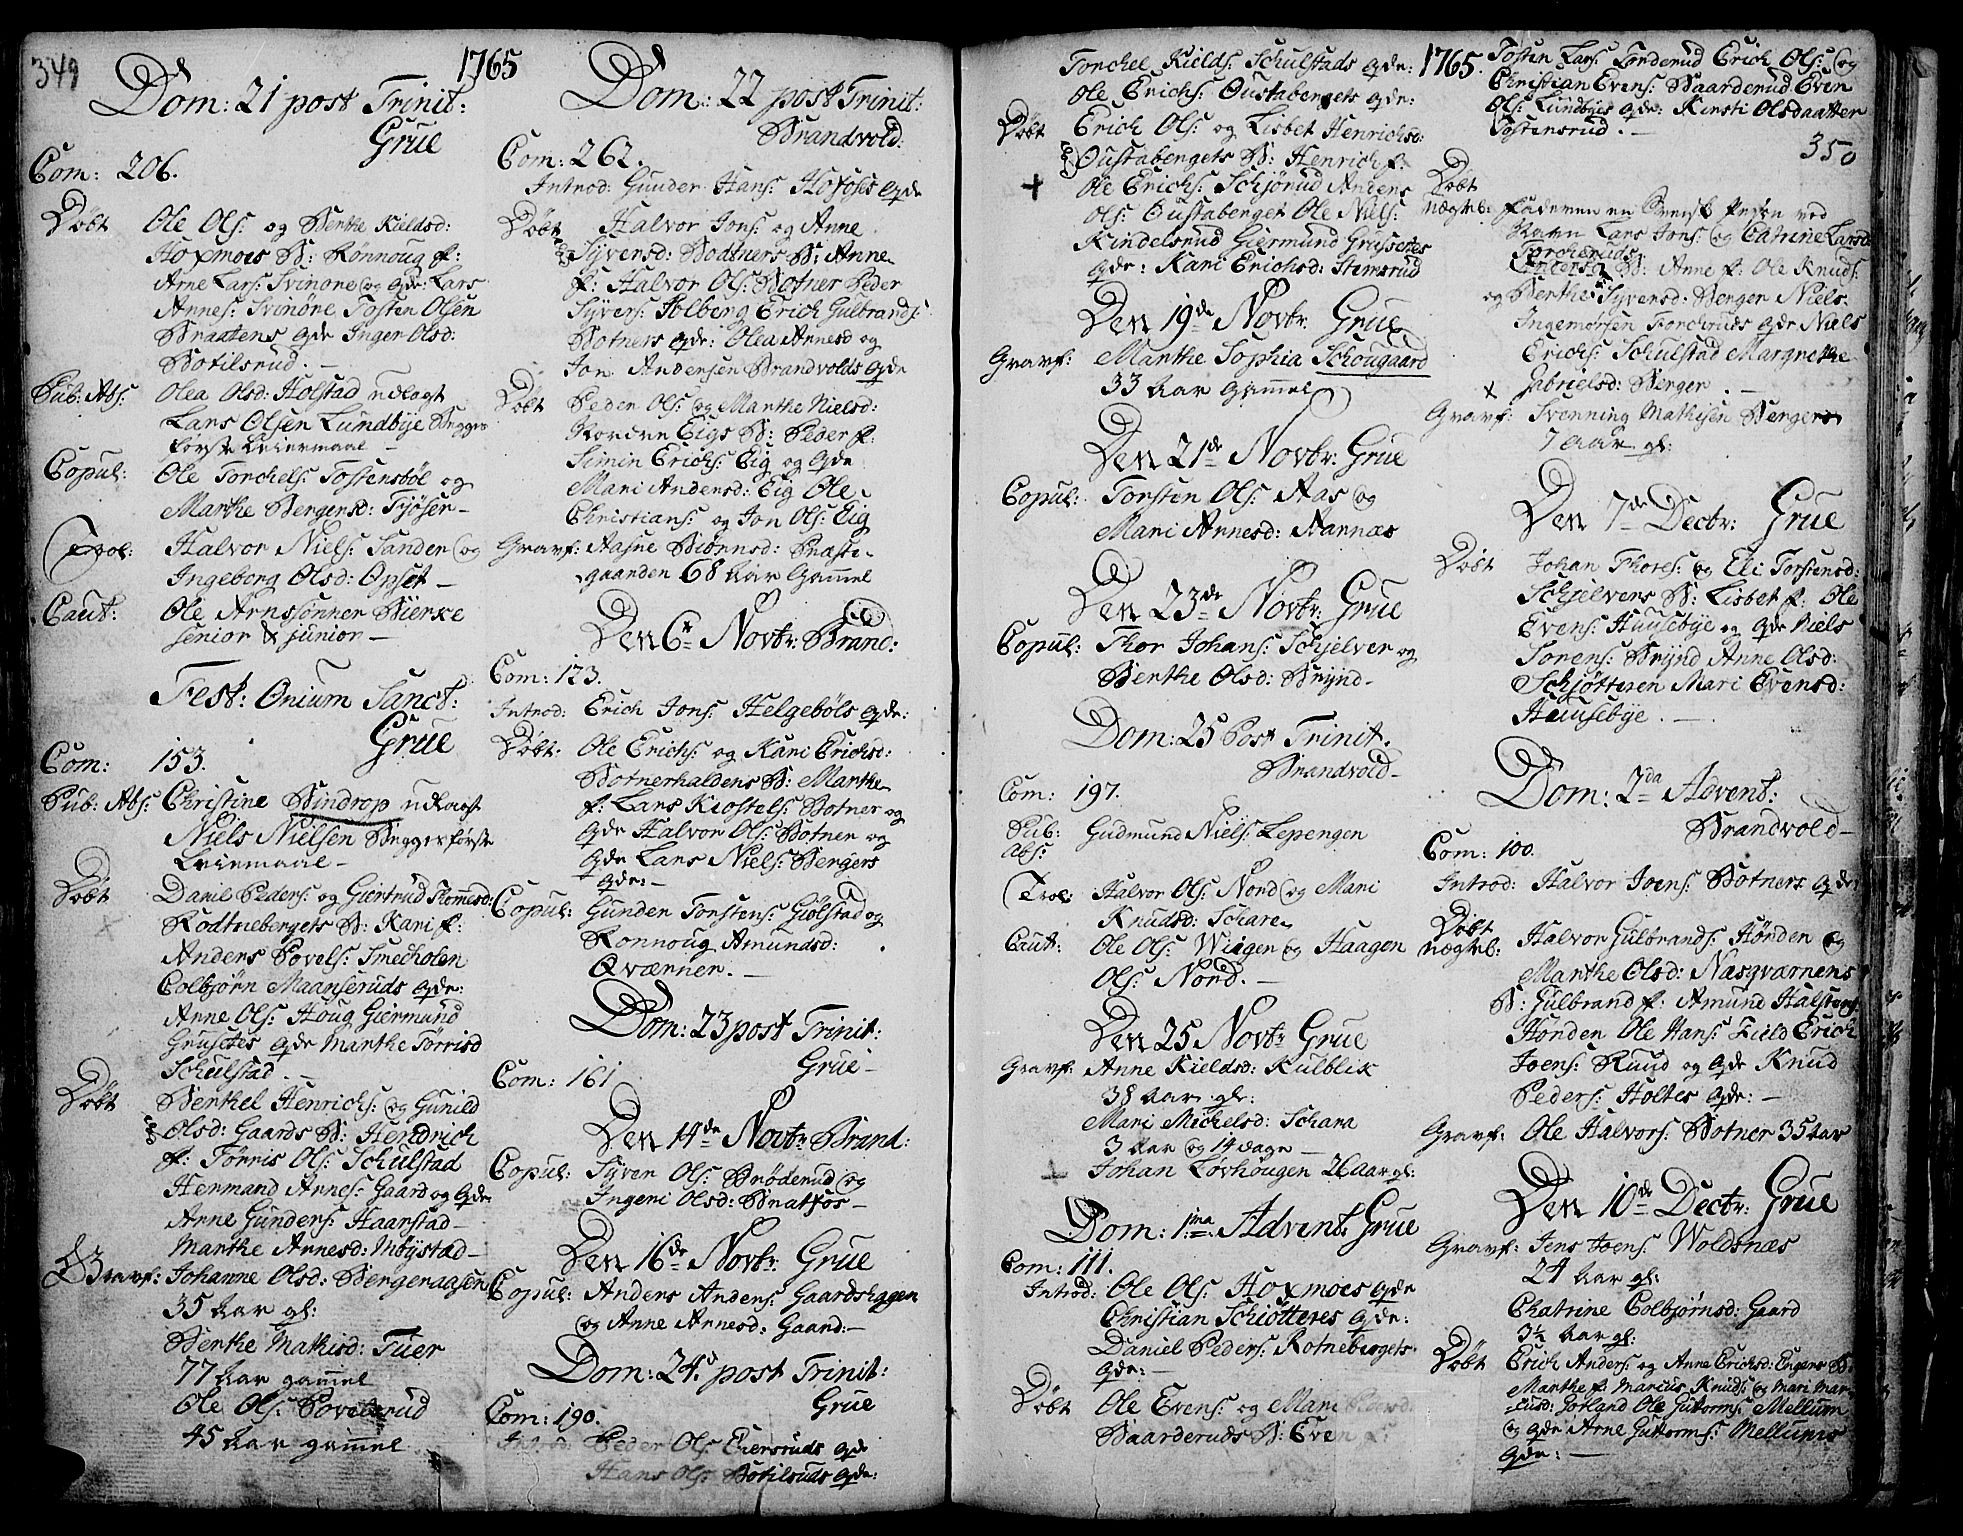 349
1765
Dom: 21 post Trinit:
Grue
Com: 206.
Döbt Ole Ols: og Berthe Kields d:
Hoxmoes B: Rönnoug f:
Arne Lars: Svinöne og qde: Lars
Annes: Svinöne Tosten Olsen
Braatens qde Inger Olsd:
Botilsrud. –
Pub: Abs: Olea Olsd: Holstad udlagt
Lars Olsen Lundbÿe Begges
første Leiermaal –
Copul: Ole Torchels: Tostensböl og
Marthe Bergersd: Tjöser –
Trol: Halvor Niels: Sanden og
Ingeborg Olsd: Opset –
Caut: Ole Arnssönner Bierke
senior & junior –
Fest: Onium Sanct:
Grue
Com: 153.
Pub: Abs: Christine Bindrop udlagt
Niels Nielsen Begges første
Leiermaal –
Döbt Daniel Peders: og Giertrud Thomesd:
Rodtnebergets B: Kari f:
Anders Povels: Smecholen
Colbjörn Maanseruds qde:
Anne Ols: Houg Giermund
Grusetes qde Marthe Törrisd
Schulstad. –
Döbt Berthel Henrichs: og Gunild
Olsd: Gaards B: Hendrich
f: Törris Ols: Schulstad
Hermand Arnes: Gaard og qde
Anne Gunders: Haarstad –
Marthe Arnesd: Möÿstad –
Gravf: Johanne Olsd: Bergeraasen
35 Aar gl:
Berthe Mathisd: Tüer
77 Aar gammel
Ole Ols: Povelsrud
45 Aar gammel
Dom: 22 post Trinit:
Brandvold:
Com: 262.
Introd: Gunder Hans: Hofoses qde
Döbt Halvor Jons: og Anne
Syversd: Bodtners B: Anne
f: Halvor Ols: Botner Peder
Syvers: Solberg Erich Gulbrands:
Botners qde: Olea Arnesd og
Jon Andersen Brandvolds qde
Döbt Peder Ols: og Marthe Nielsd:
Nordre Eigs B: Peder f:
Simin Erichs: Eig og qde
Mari Andersd: Eig Ole
Christians: og Jon Ols: Eig
Gravf: Aasne Biörnsd: Præste-
gaarden 68 Aar Gammel
Den 6te Novbr: Brand:
Com: 123.
Introd: Erich Jons: Helgeböls qde:
Döbt: Ole Erichs: og Kari Erichsd:
Botnerhaldens B: Marthe
f: Lars Kiostels: Botner og
qde Halvor Ols: Botner og
qde Lars Niels: Bergers
qde: –
Copul: Gunder Torstens: Giölstad og
Ronnoug Amundsd:
Qværnen. –
Dom: 23 post Trinit:
Grue –
Com: 161
Den 14de Novbr: Brand:
Copul: Syver Ols: Bröderud og
Ingeri Olsd: Bratfos –
Den 16de Novbr: Grue
Copul: Anders Anders: Gaardshagen
og Anne Arnesd: Gaard: –
Dom: 24. post Trinit:
Grue
Com: 190.
Introd: Peder Ols: Eiersruds qde
Hans Ols: Botilsruds qde:
Torchel Kields: Schulstads qde:
Ole Erichs: Oustabergets qde:
Döbt Erich Ols: og Lisbet Henrichsd:
Oustabergets B: Henrich f:
Ole Erichs: Schjörud Anders
Ols: Oustaberget Ole Niels:
Kindelsrud Giermund Grussetes
qde: Kari Erichsd: Stemsrud
Den 19de Novbr. Grue
Gravf: Marthe Sophia Schougaard
33 Aar Gammel
Den 21de Novbr: Grue
Copul: Torsten Ols: Aas og
Mari Arnesd: Aannæs
Den 23de Novbr: Grue
Copul: Thor Johans: Schjelver og
Berthe Olsd: Brÿnd –
Dom: 25 Post Trinit.
Brandvold –
Com: 197.
Pub: Abs: Gudmund Niels: Lepengen
Trol: Halvor Ols: Nord og Mari
Knudsd: Schare
Caut: Ole Ols: Wiigen og Haagen
Ols: Nord. –
Den 25 Novbr Grue
Gravf: Anne Kieldsd: Kulblik
38 Aar gl:
Mari Michelsd: Schara
3 Aar og 14 dage –
Johan Lövhougen 26 aar gl:
Dom: 1ma: Advent: Grue
Com: 111.
Introd: Ole Ols: Hoxmoes qde
Christian Schiötteres qde:
Daniel Peders: Rotnebergets
qde: –
Döbt Ole Evens: og Mari
Baarderuds B: Even f:
1765.
Tosten Lars: Torderud Erich Ols: og
Christian Evens: Baarderud Even
Ols: Lundbÿes qde: Kirsti Olsdaatter
Tostensrud. –
350
Döbt
nægtel: Faderen en Svensk Person ved
Navn Lars Jons: og Catrine Larsd
Torcheruds
B: Anne f: Ole Knuds:
og Berthe Syversd: Berger Niels
Ingemörsen Forcheruds qde Niels
Erichs: Schulstad Margrethe
Gabrielsd: Berger. –
Gravf: Svenning Mathisen Bergers
7 Aar gl:
Den 7de Decbr: Grue
Döbt Johan Thores: og Eli Torstensd:
Schjelvers B: Lisbet f: Ole
Evens: Huusebÿe og qde Niels
Sorens: Brÿnd Anne Olsd:
Schjötteren Mari Evensd:
Huusebÿe. –
Dom: 2da Advent:
Brandvold –
Com: 100.
Introd: Halvor Joens: Botners qde:
Döbt
nægtel: Halvor Gulbrands: Hönden og
Marthe Olsd: Nasqvarnens
B: Gulbrand f: Amund Halsteng
Honden Ole Hans: Field Erich
Joens: Ruud og qde Knud
Peders: Holtes qde: –
Gravf: Ole Halvors: Botner 35 aar
Den 10de Decbr: Grue
Gravf: Jens Joens: Woldsnæs
24 Aar gl:
Chatrine Colbjörnsd: Gaard
3½ Aar gl:
Döbt Erich Anders: og Anne Erichsd: Engers B:
Marthe f: Marcus Knuds: og Mari Mar-
cusd: Jotland Ole Guttorms: Mellum
og qde Arne Guttorms: Mellums
qde: –